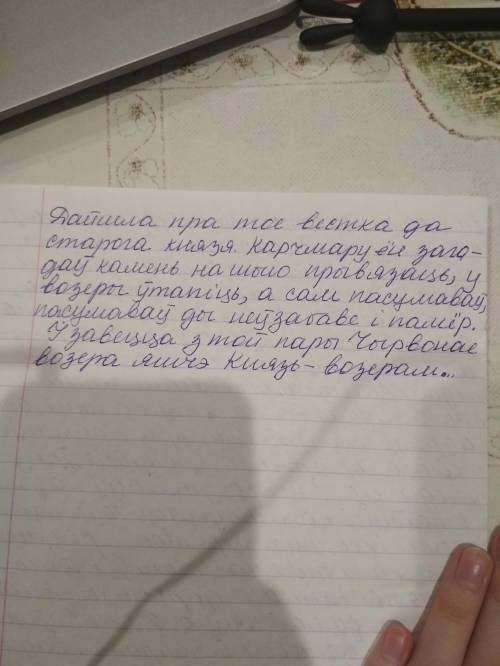 Дайшла пра тое вестка да
старога князя. Карчмару ён зага-
даў камень на шыю прывязаць, у
возеры ўтапіць, а сам пасумаваў,
пасумаваў ды неўзабаве і памёр.
І завецца з той пары Чырвонае
возера яшчэ Князь-возерам...